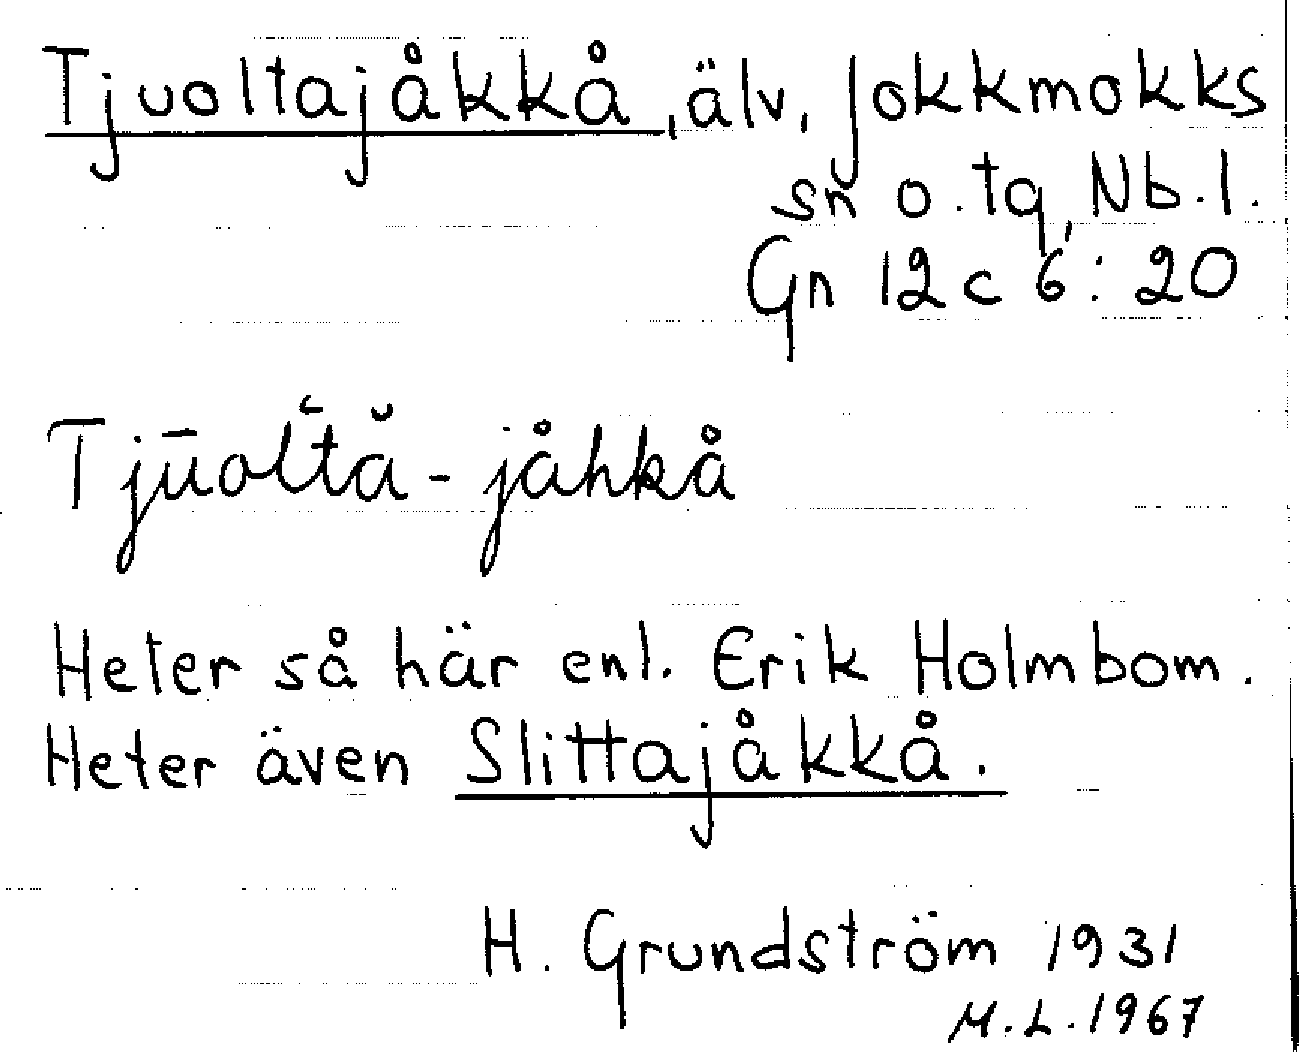 Tjuoltajåkkå, älv, Jokkmokks
sn o. tg, Nb. l.
Gn 12 c 6: 20
Tjūolt‘ă-jåhkå
Heter så här enl. Erik Holmbom.
Heter även Slittajåkkå.
H. Grundström 1931
M.L. 1967